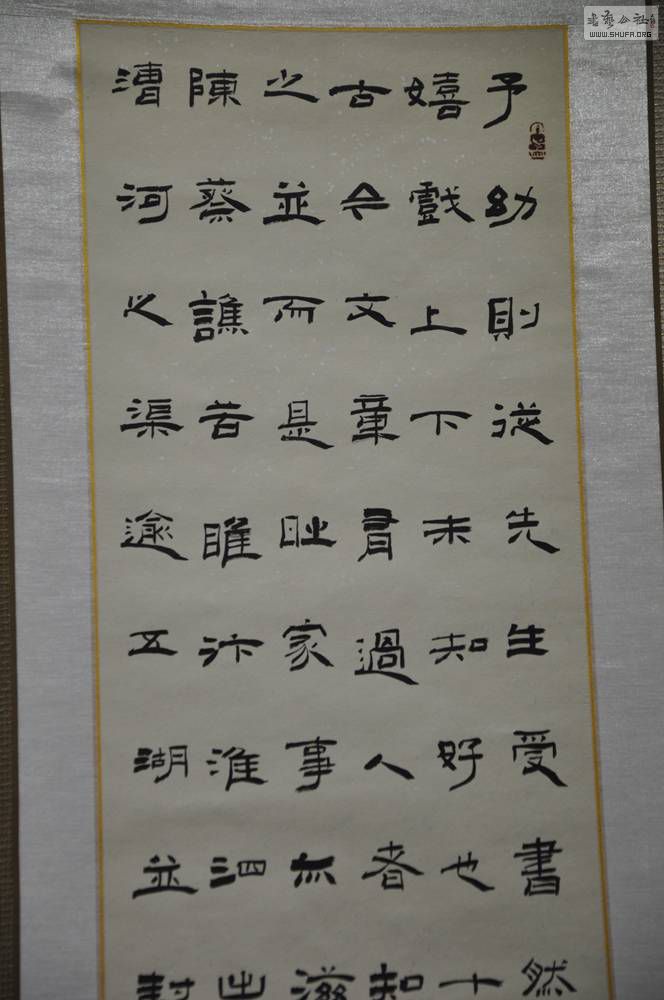 予幼則從先生受書然
嬉戲上下未知好也十
古今文章有過人者知
之並而是時家事亦滋
陳蔡譙苦睢汴淮泗出
漕河之渠逾五湖並封
书艺公社
WWW.SHUFA.ORG